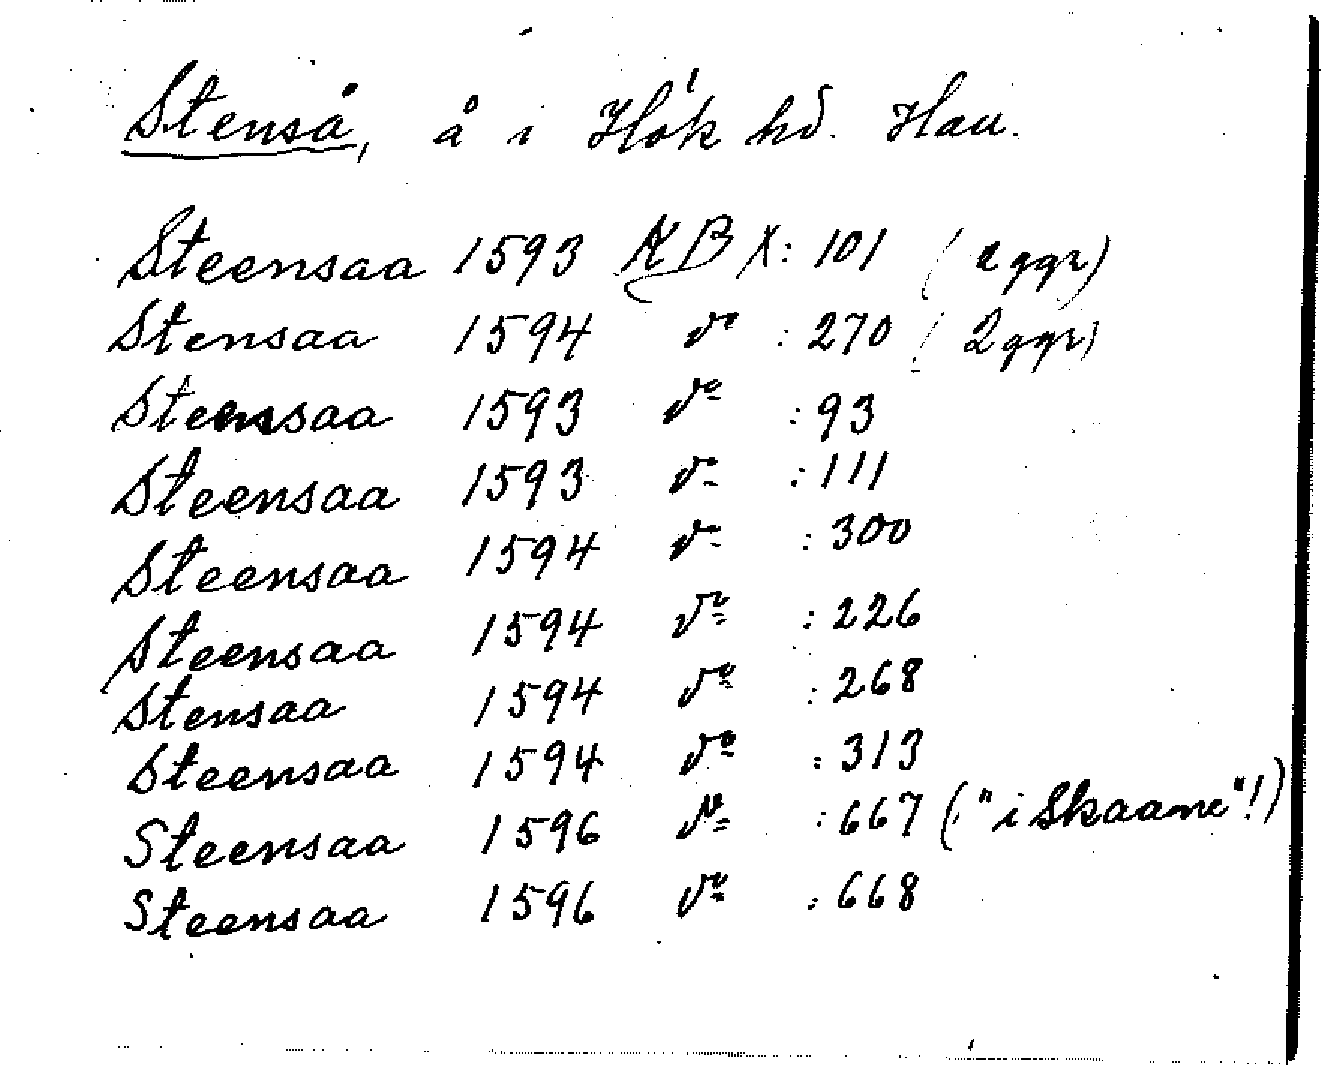 Stenså, å i Hök hd. Hall.
Steensaa 1593 KB X: 101 (2 ggr)
Stensaa 1594 do : 270 (2 ggr)
Stensaa 1593 do : 93
Steensaa 1593 do : 111
Steensaa 1594 do : 300
Steensaa 1594 do : 226
Stensaa 1594 do : 268
Steensaa 1594 do : 313
Steensaa 1596 do : 667 ("i Skaane"!)
Steensaa 1596 do : 668